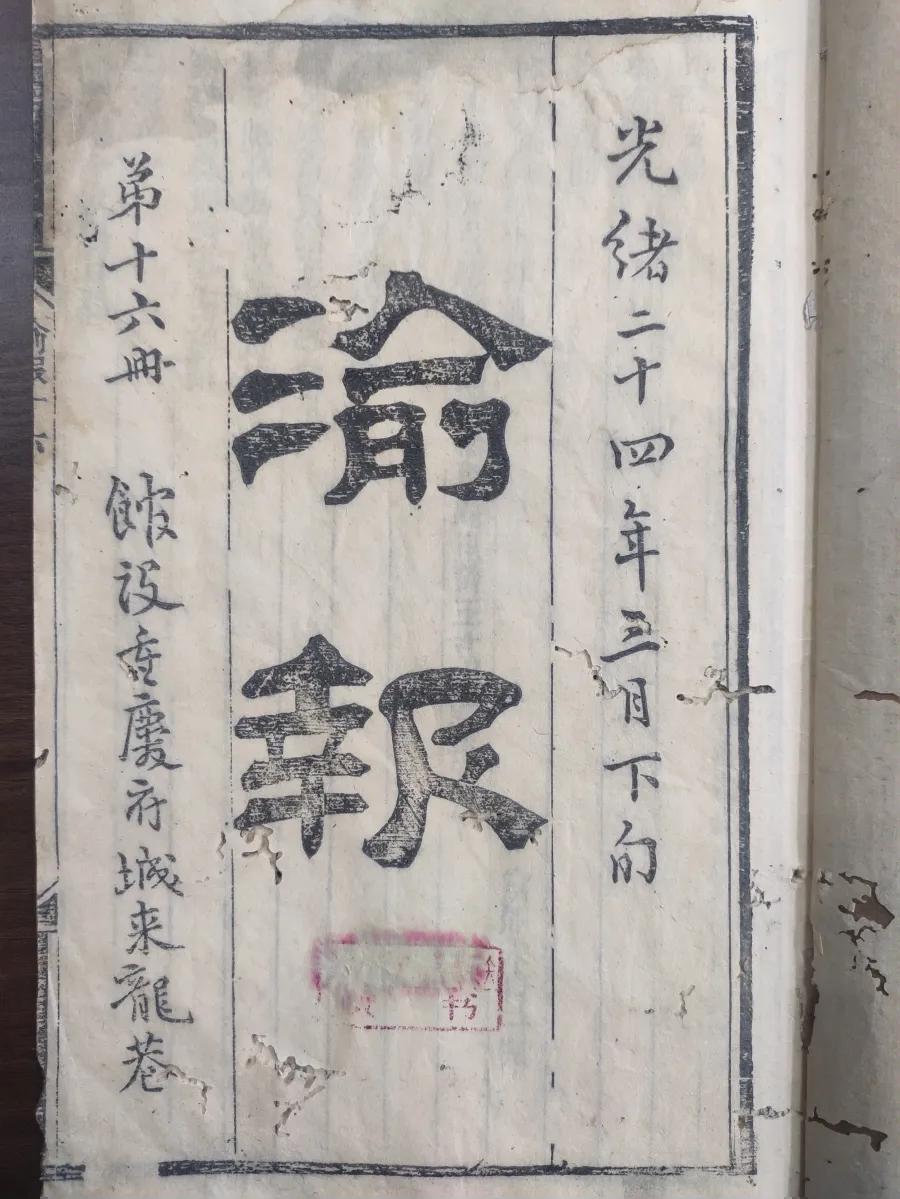 光緒二十四年三月下旬
渝報
弟十六冊 館設重慶府城来龍巷